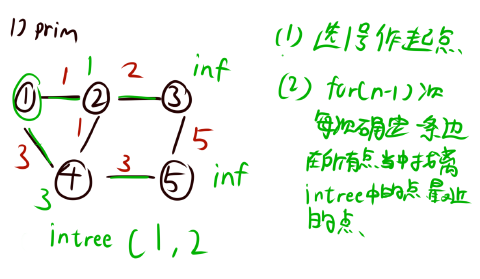 1) prim
1
1
2
inf
①
②
③
1
5
3
3
④
⑤
inf
3
intree (1,2
(1) 选1号作起点
(2) for(n-1)次
每次确定一条边
在所有点当中找离
intree中的点最近
的点、